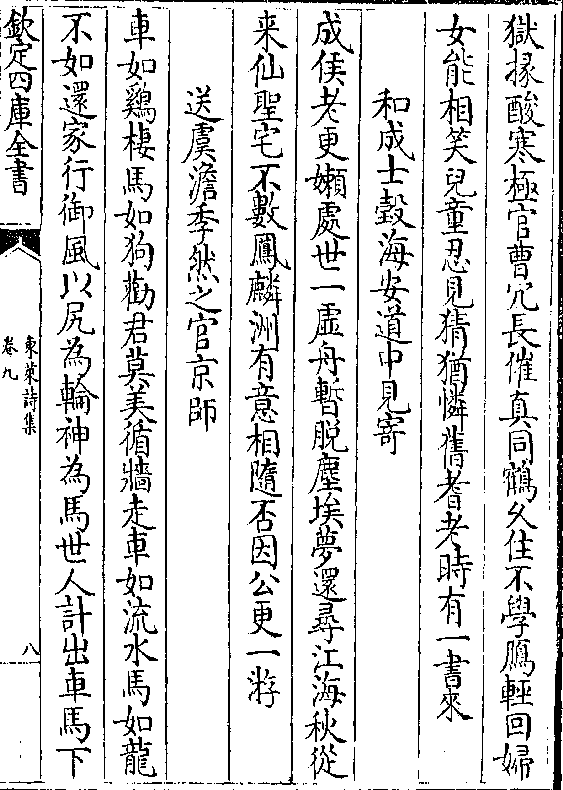 獄掾酸寒極官曹冗長催真同鶴久住不學鴈輕回婦
女能相笑兒童忍見猜猶憐舊耆老時有一書來
和成士瑴海安道中見寄
成侯老更嬾處世一虛舟暫脱塵埃夢還尋江海秋從
来仙聖宅不數鳳麟洲有意相隨否因公更一游
送虞澹季然之官京師
車如鷄棲馬如狗勸君莫羙循牆走車如流水馬如龍
不如還家行御風以尻為輪神為馬世人計出車馬下
欽定四庫全書
東萊詩集
卷九
八